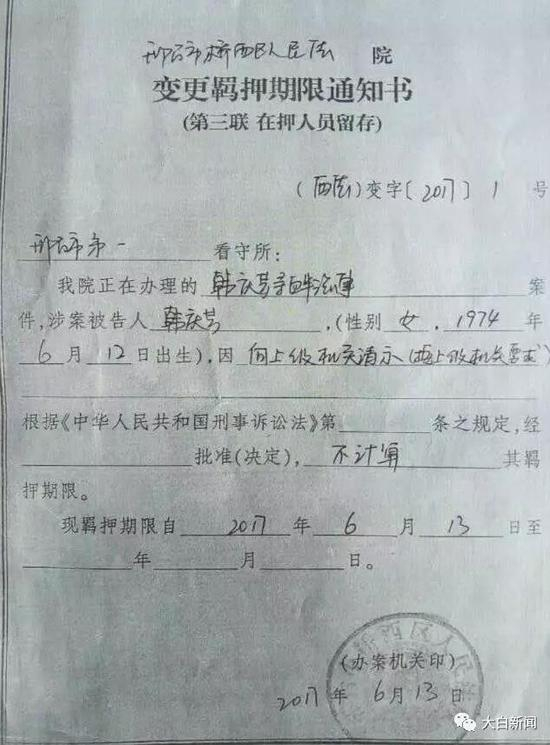 邢台市桥西区人民法 院
变更羁押期限通知书
(第三联 在押人员留存)
(西法)变字〔2017〕1 号
邢台市第一 看守所:
我院正在办理的 韩庆芳寻衅滋事 案
件,涉案被告人 韩庆芳 ,(性别 女 ,1974 年
6 月 12 日出生),因 向上级机关请示(应上级机关要求)
根据《中华人民共和国刑事诉讼法》第 条之规定,经
批准(决定), 不计算 其羁
押期限。
现羁押期限自 2017 年 6 月 13 日至
年 月 日。
桥西区人民
(办案机关印)
2017 年 6 月 13 日
大白新闻